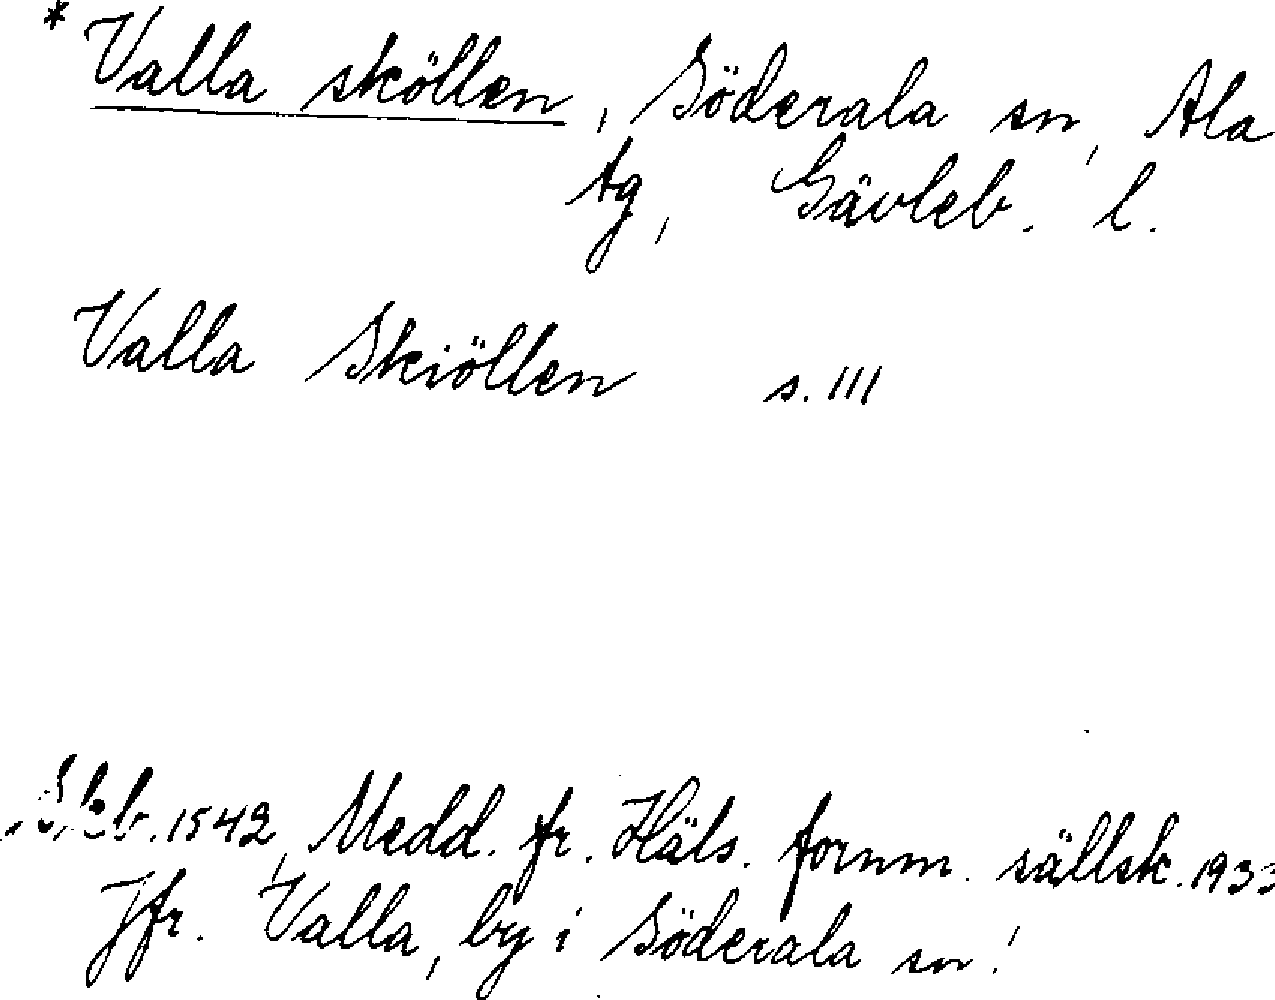 * Valla sköllen, Söderala sn, Ala
tg, Gävleb. l.
Valla Skiöllen s. 111
Skb. 1542, Medd. fr. Häls. fornm. sällsk. 1933
Jfr. Valla, by i Söderala sn!